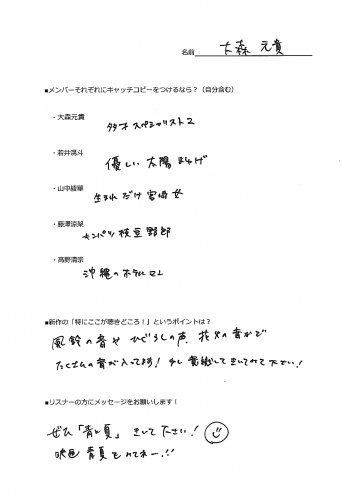 名前 大森 元貴
■メンバーそれぞれにキャッチコピーをつけるなら？（自分含む）
・大森元貴
タダオ スペシャリスト2
・若井滉斗
優しい 太陽 まゆげ
・山中綾華
生まれだけ宮崎女
・藤澤涼架
キンパツ枝豆野郎
・髙野清宗
沖縄のホテルマン
■新作の「特にここが聴きどころ！」というポイントは？
風鈴の音や ひぐらしの声、花火の音まで
たくさんの音が入ってます！ 少し意識してきいてみて下さい！
■リスナーの方にメッセージをお願いします！
ぜひ「青と夏」きいて下さい！
映画 青夏もみてねー!!